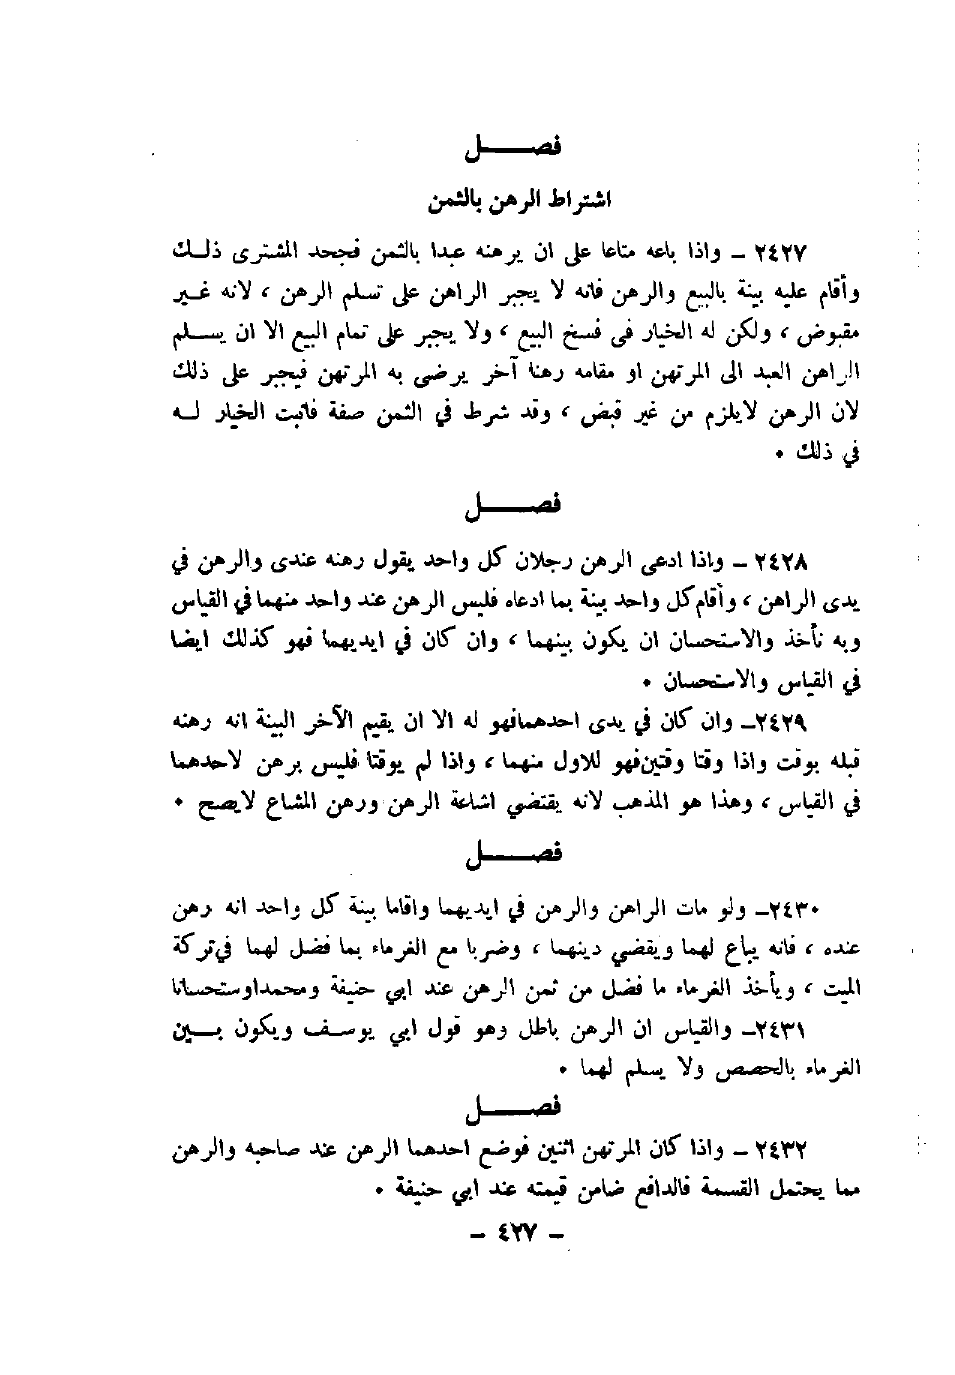 فصــــــل
اشتراط الرهن بالثمن
٢٤٢٧ ــ واذا باعه متاعا على ان يرهنه عبدا بالثمن فجحد المشترى ذلــك
وأقام عليه بينة بالبيع والرهن فانه لا يجبر الراهن على تسلم الرهن ، لانه غــير
مقبوض ، ولكن له الخيار فى فسخ البيع ، ولا يجبر على تمام البيع الا ان يســلم
الراهن العبد الى المرتهن او مقامه رهنا آخر يرضى به المرتهن فيجبر على ذلك
لان الرهن لايلزم من غير قبض ، وقد شرط في الثمن صفة فاثبت الخيار لــه
في ذلك •
فصــــــل
٢٤٢٨ ــ واذا ادعى الرهن رجلان كل واحد يقول رهنه عندى والرهن في
يدى الراهن ، وأقام كل واحد بينة بما ادعاه فليس الرهن عند واحد منهما في القياس
وبه نأخذ والاستحسان ان يكون بينهما ، وان كان في ايديهما فهو كذلك ايضا
في القياس والاستحسان •
٢٤٢٩ــ وان كان في يدى احدهما فهو له الا ان يقيم الآخر البينة انه رهنه
قبله بوقت واذا وقتا وقتين فهو للاول منهما ، واذا لم يوقتا فليس برهن لاحدهما
في القياس ، وهذا هو المذهب لانه يقتضي اشاعة الرهن ورهن المشاع لايصح •
فصــــــل
٢٤٣٠ــ ولو مات الراهن والرهن في ايديهما واقاما بينة كل واحد انه رهن
عنده ، فانه يباع لهما ويقضي دينهما ، وضربا مع الغرماء بما فضل لهما في تركة
الميت ، ويأخذ الغرماء ما فضل من ثمن الرهن عند ابي حنيفة ومحمد اوستحسانا
٢٤٣١ــ والقياس ان الرهن باطل وهو قول ابي يوسف ويكون بــين
الغرماء بالحصص ولا يسلم لهما •
فصــــــل
٢٤٣٢ ــ واذا كان المرتهن اثنين فوضع احدهما الرهن عند صاحبه والرهن
مما يحتمل القسمة فالدافع ضامن قيمته عند ابي حنيفة •
ــ ٤٢٧ ــ